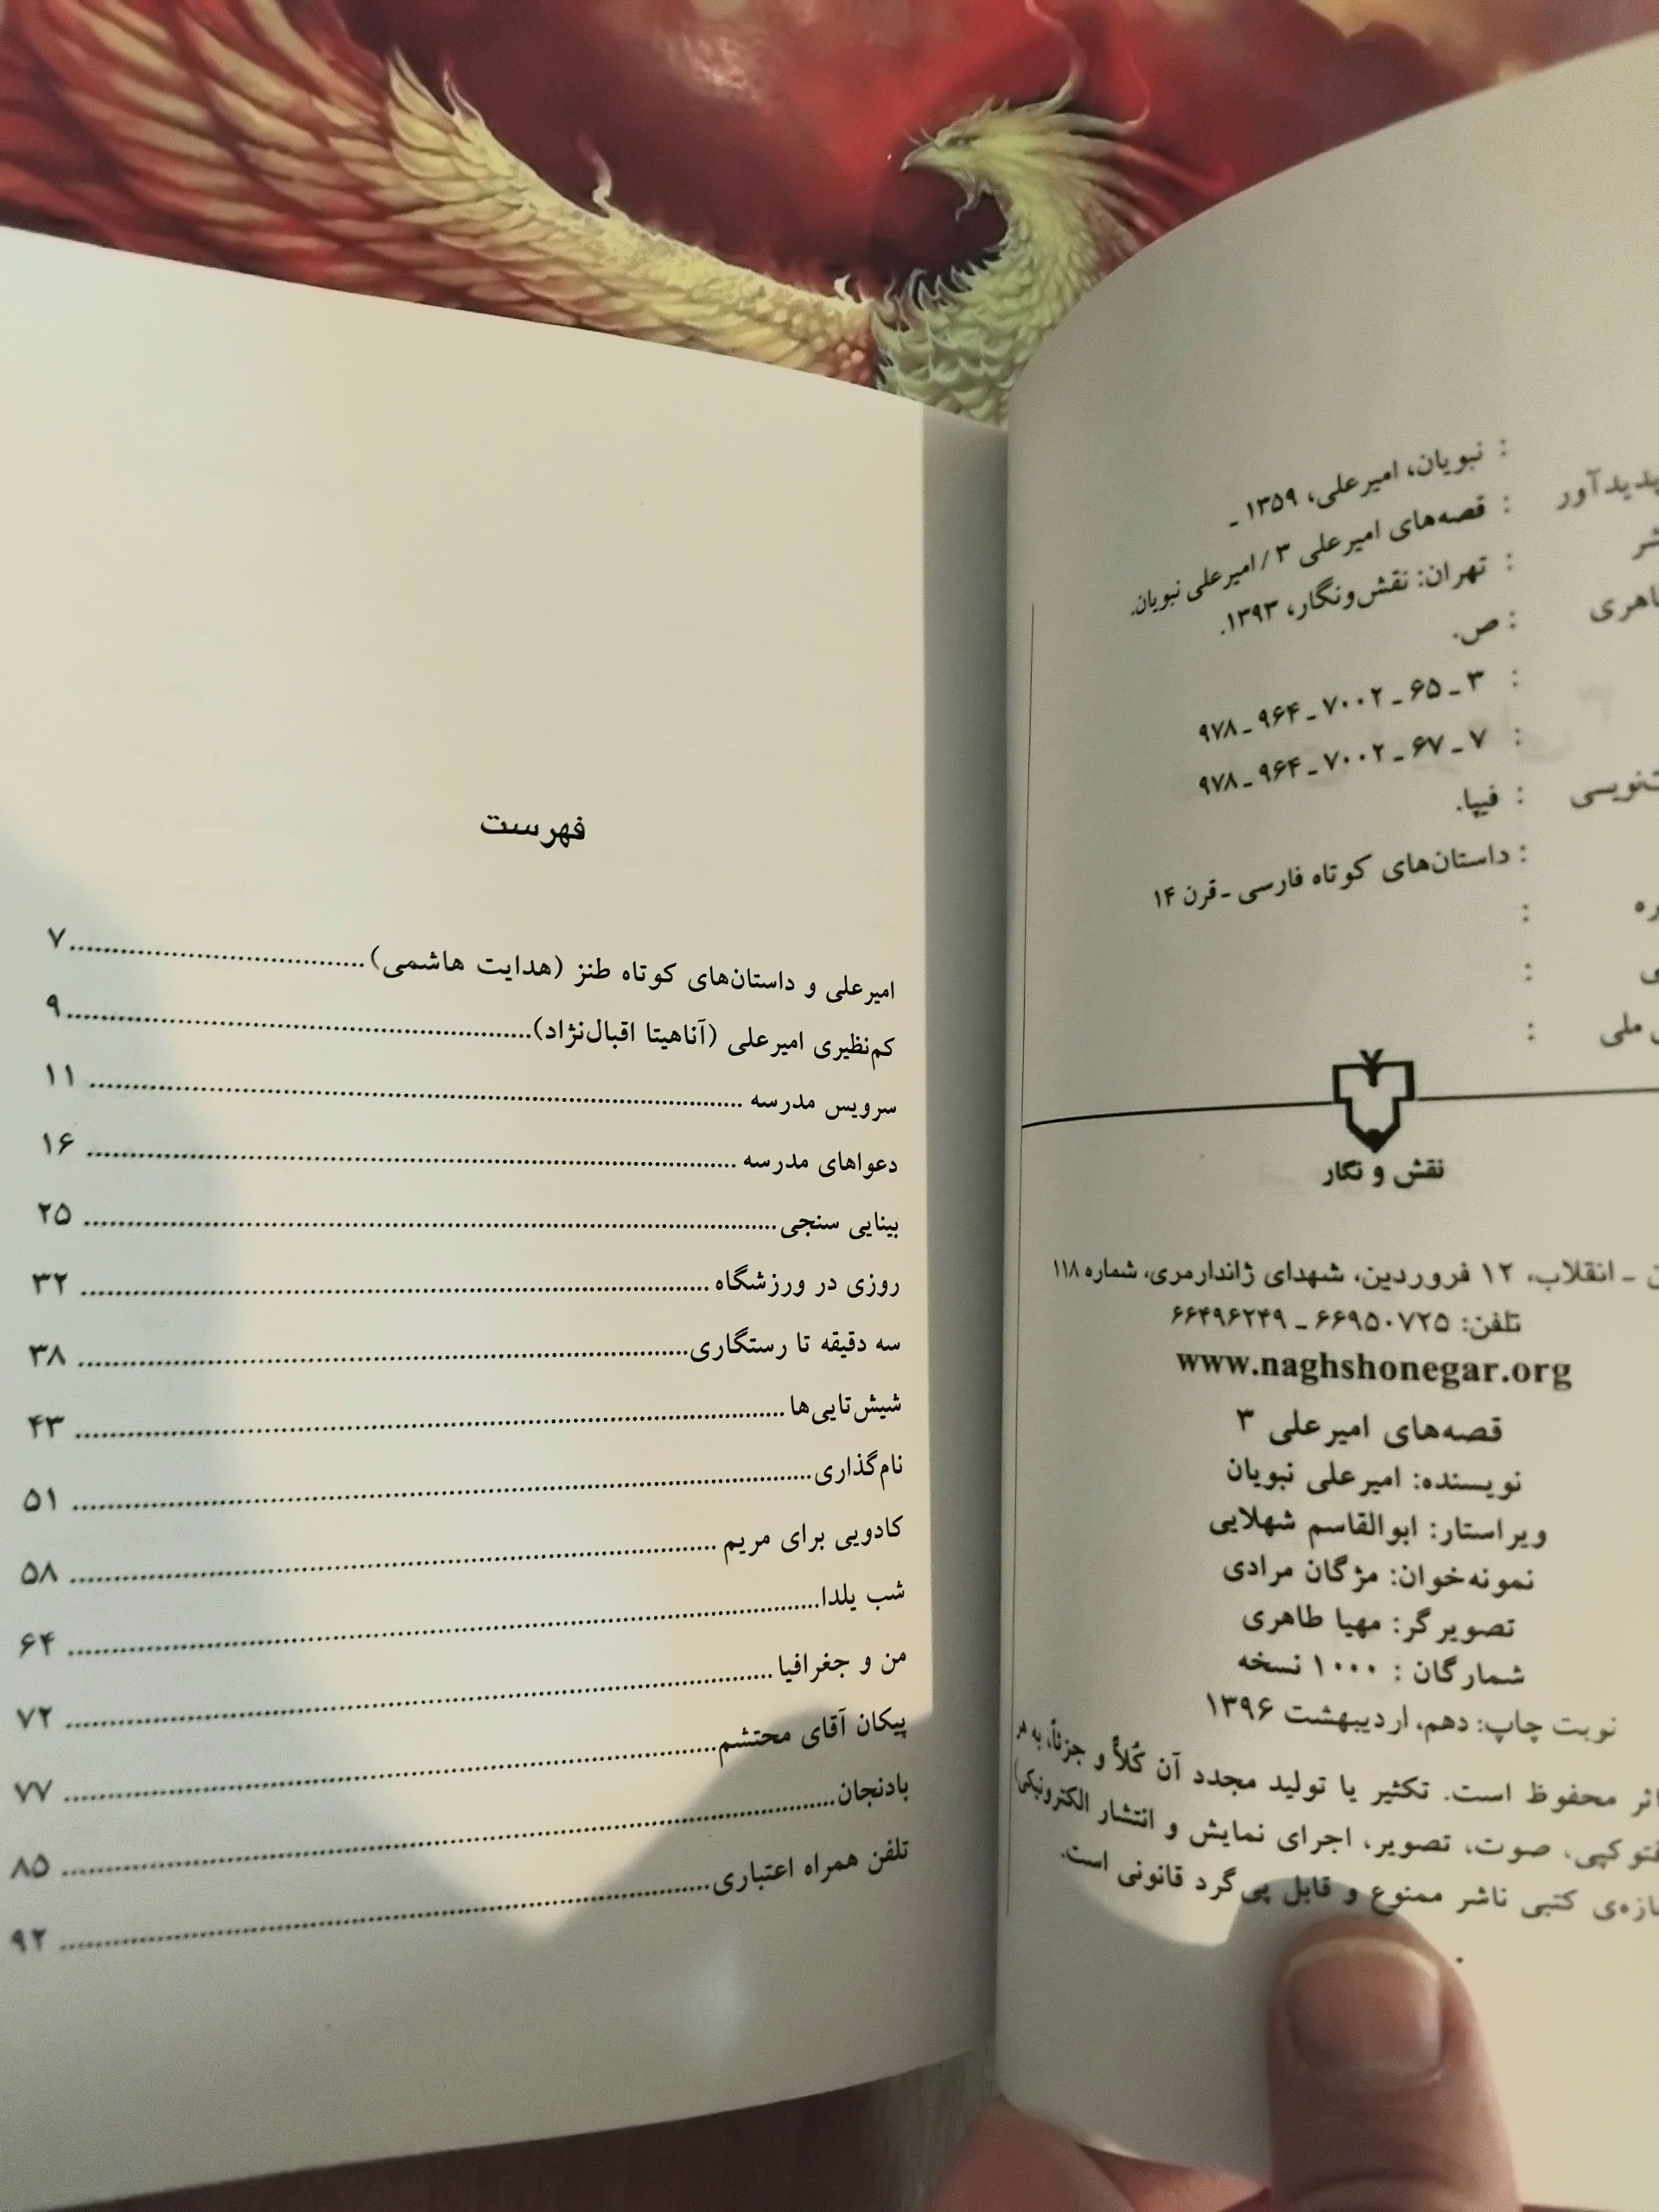 پدیدآور : نبویان، امیرعلی، ۱۳۵۹ ـ
: قصه‌های امیرعلی ۳ / امیرعلی نبویان.
: تهران: نقش‌ونگار، ۱۳۹۳.
: ص.
: ۹۷۸ ـ ۹۶۴ ـ ۷۰۰۲ ـ ۶۵ ـ ۳
: ۹۷۸ ـ ۹۶۴ ـ ۷۰۰۲ ـ ۶۷ ـ ۷
: فیپا.
: داستان‌های کوتاه فارسی ـ قرن ۱۴
:
:
ملی :
نقش و نگار
ـ انقلاب، ۱۲ فروردین، شهدای ژاندارمری، شماره ۱۱۸
تلفن: ۶۶۹۵۰۷۲۵ ـ ۶۶۴۹۶۲۴۹
www.naghshonegar.org
قصه‌های امیرعلی ۳
نویسنده: امیرعلی نبویان
ویراستار: ابوالقاسم شهلایی
نمونه‌خوان: مژگان مرادی
تصویرگر: مهیا طاهری
شمارگان : ۱۰۰۰ نسخه
نوبت چاپ: دهم، اردیبهشت ۱۳۹۶
اثر محفوظ است. تکثیر یا تولید مجدد آن کُلاً و جزئاً، به هر
صوت، تصویر، اجرای نمایش و انتشار الکترونیکی)
کتبی ناشر ممنوع و قابل پی‌گرد قانونی است.
فهرست
امیرعلی و داستان‌های کوتاه طنز (هدایت هاشمی)................................۷
کم‌نظیری امیرعلی (آناهیتا اقبال‌نژاد)................................۹
سرویس مدرسه ................................ ۱۱
دعواهای مدرسه ................................ ۱۶
بینایی سنجی................................ ۲۵
روزی در ورزشگاه ................................ ۳۲
سه دقیقه تا رستگاری................................ ۳۸
شیش‌تایی‌ها ................................ ۴۳
نام‌گذاری................................ ۵۱
کادویی برای مریم ................................ ۵۸
شب یلدا................................ ۶۴
من و جغرافیا ................................ ۷۲
پیکان آقای محتشم................................ ۷۷
بادنجان................................ ۸۵
تلفن همراه اعتباری................................ ۹۲